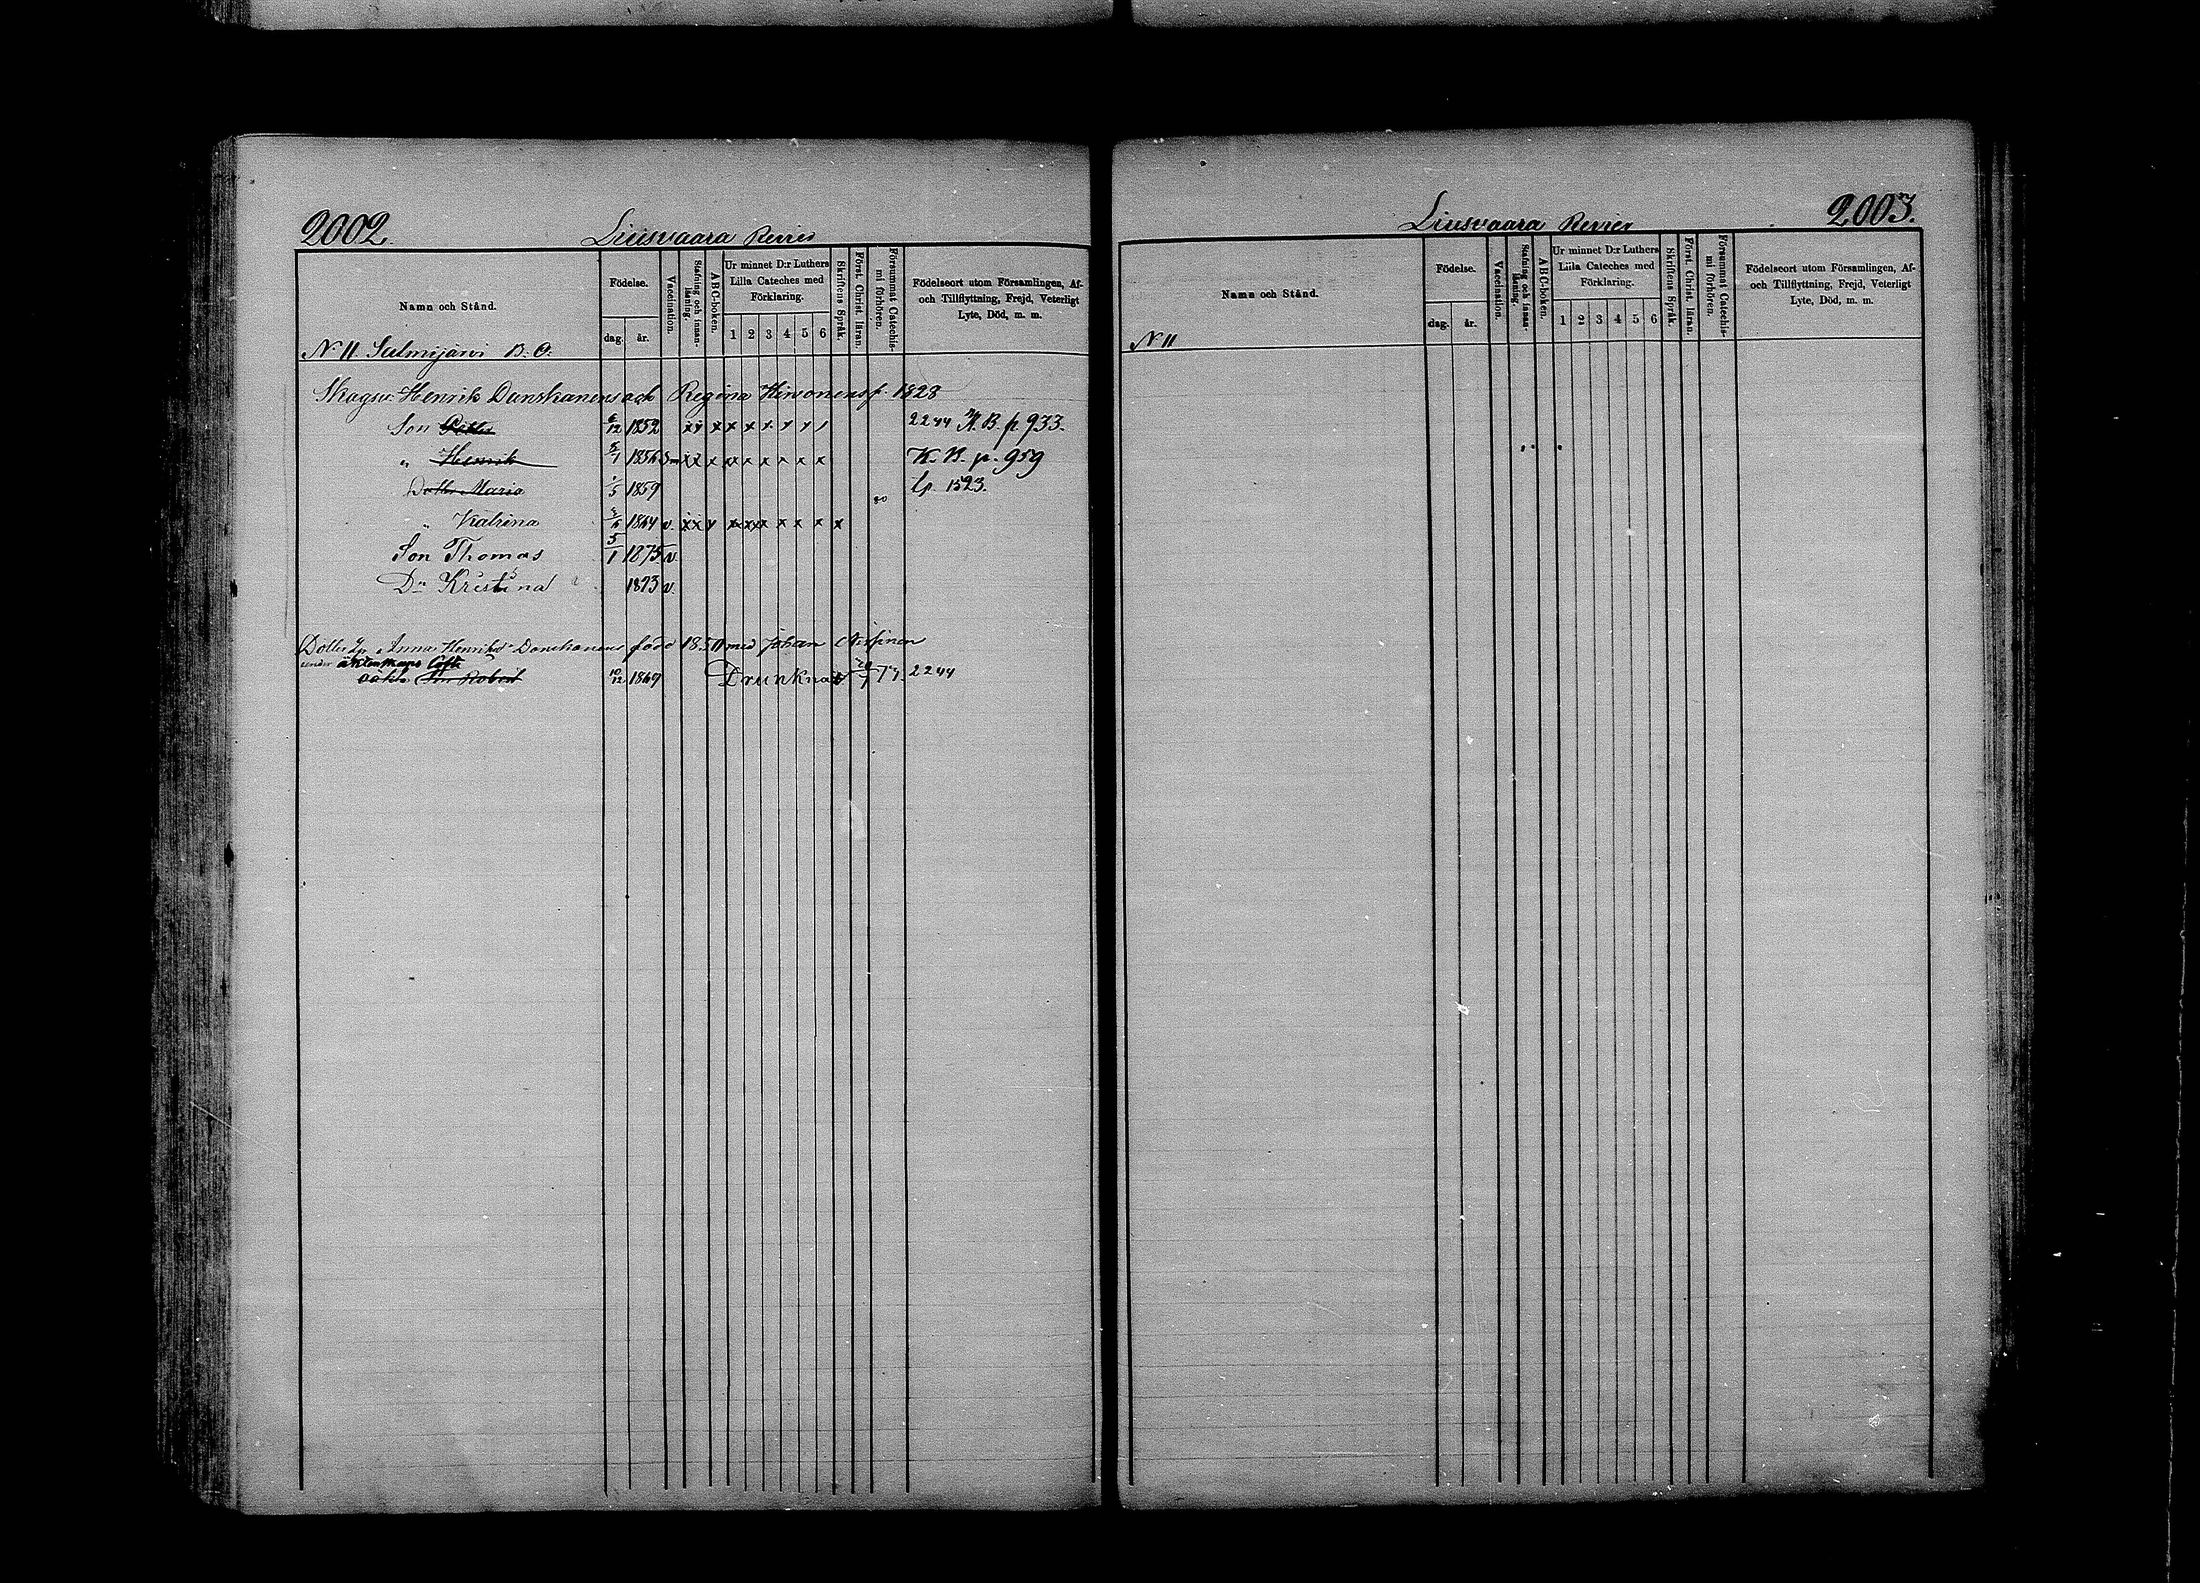 2002.
Liusvaara Revier
Namn och Stånd.
Födelse.
dag.
år.
Vaccination.
Stafning och innan-läsning.
ABC-boken.
Ur minnet D:r Luthers Lilla Cateches med Förklaring.
1 2 3 4 5 6
Skriftens Språk.
Först. Christ. läran.
Försummat Catechis-mi förhören.
Födelseort utom Församlingen, Af- och Tillflyttning, Frejd, Veterligt Lyte, Död, m. m.
N 11 Sulmijärvi B. O.
Skogsv: Henrik Danskanens och Regina Hirvonens f. 1828
Son Petter 6/12 1852 x x x x x x x x / 2244 K. B. p. 933.
" Henrik 5/1 1856 x x x x x x x x x K. B. p. 959
Dotter Maria 1/5 1859 Lp. 1523.
" Katrina 1864 v. x x x x x x x x x x
Son Thomas 5/1 1875 v.
D:r Kristina 1873 v.
Dotter Anna Henriks Danskanens född 1850 med Johan
under äktenskapet
oäkta Son Robert 10/12 1869 Drunknat 2244
2003.
Liusvaara Revier
Namn och Stånd.
Födelse.
dag.
år.
Vaccination.
Stafning och innan-läsning.
ABC-boken.
Ur minnet D:r Luthers Lilla Cateches med Förklaring.
1 2 3 4 5 6
Skriftens Språk.
Först. Christ. läran.
Försummat Catechis-mi förhören.
Födelseort utom Församlingen, Af- och Tillflyttning, Frejd, Veterligt Lyte, Död, m. m.
N 11